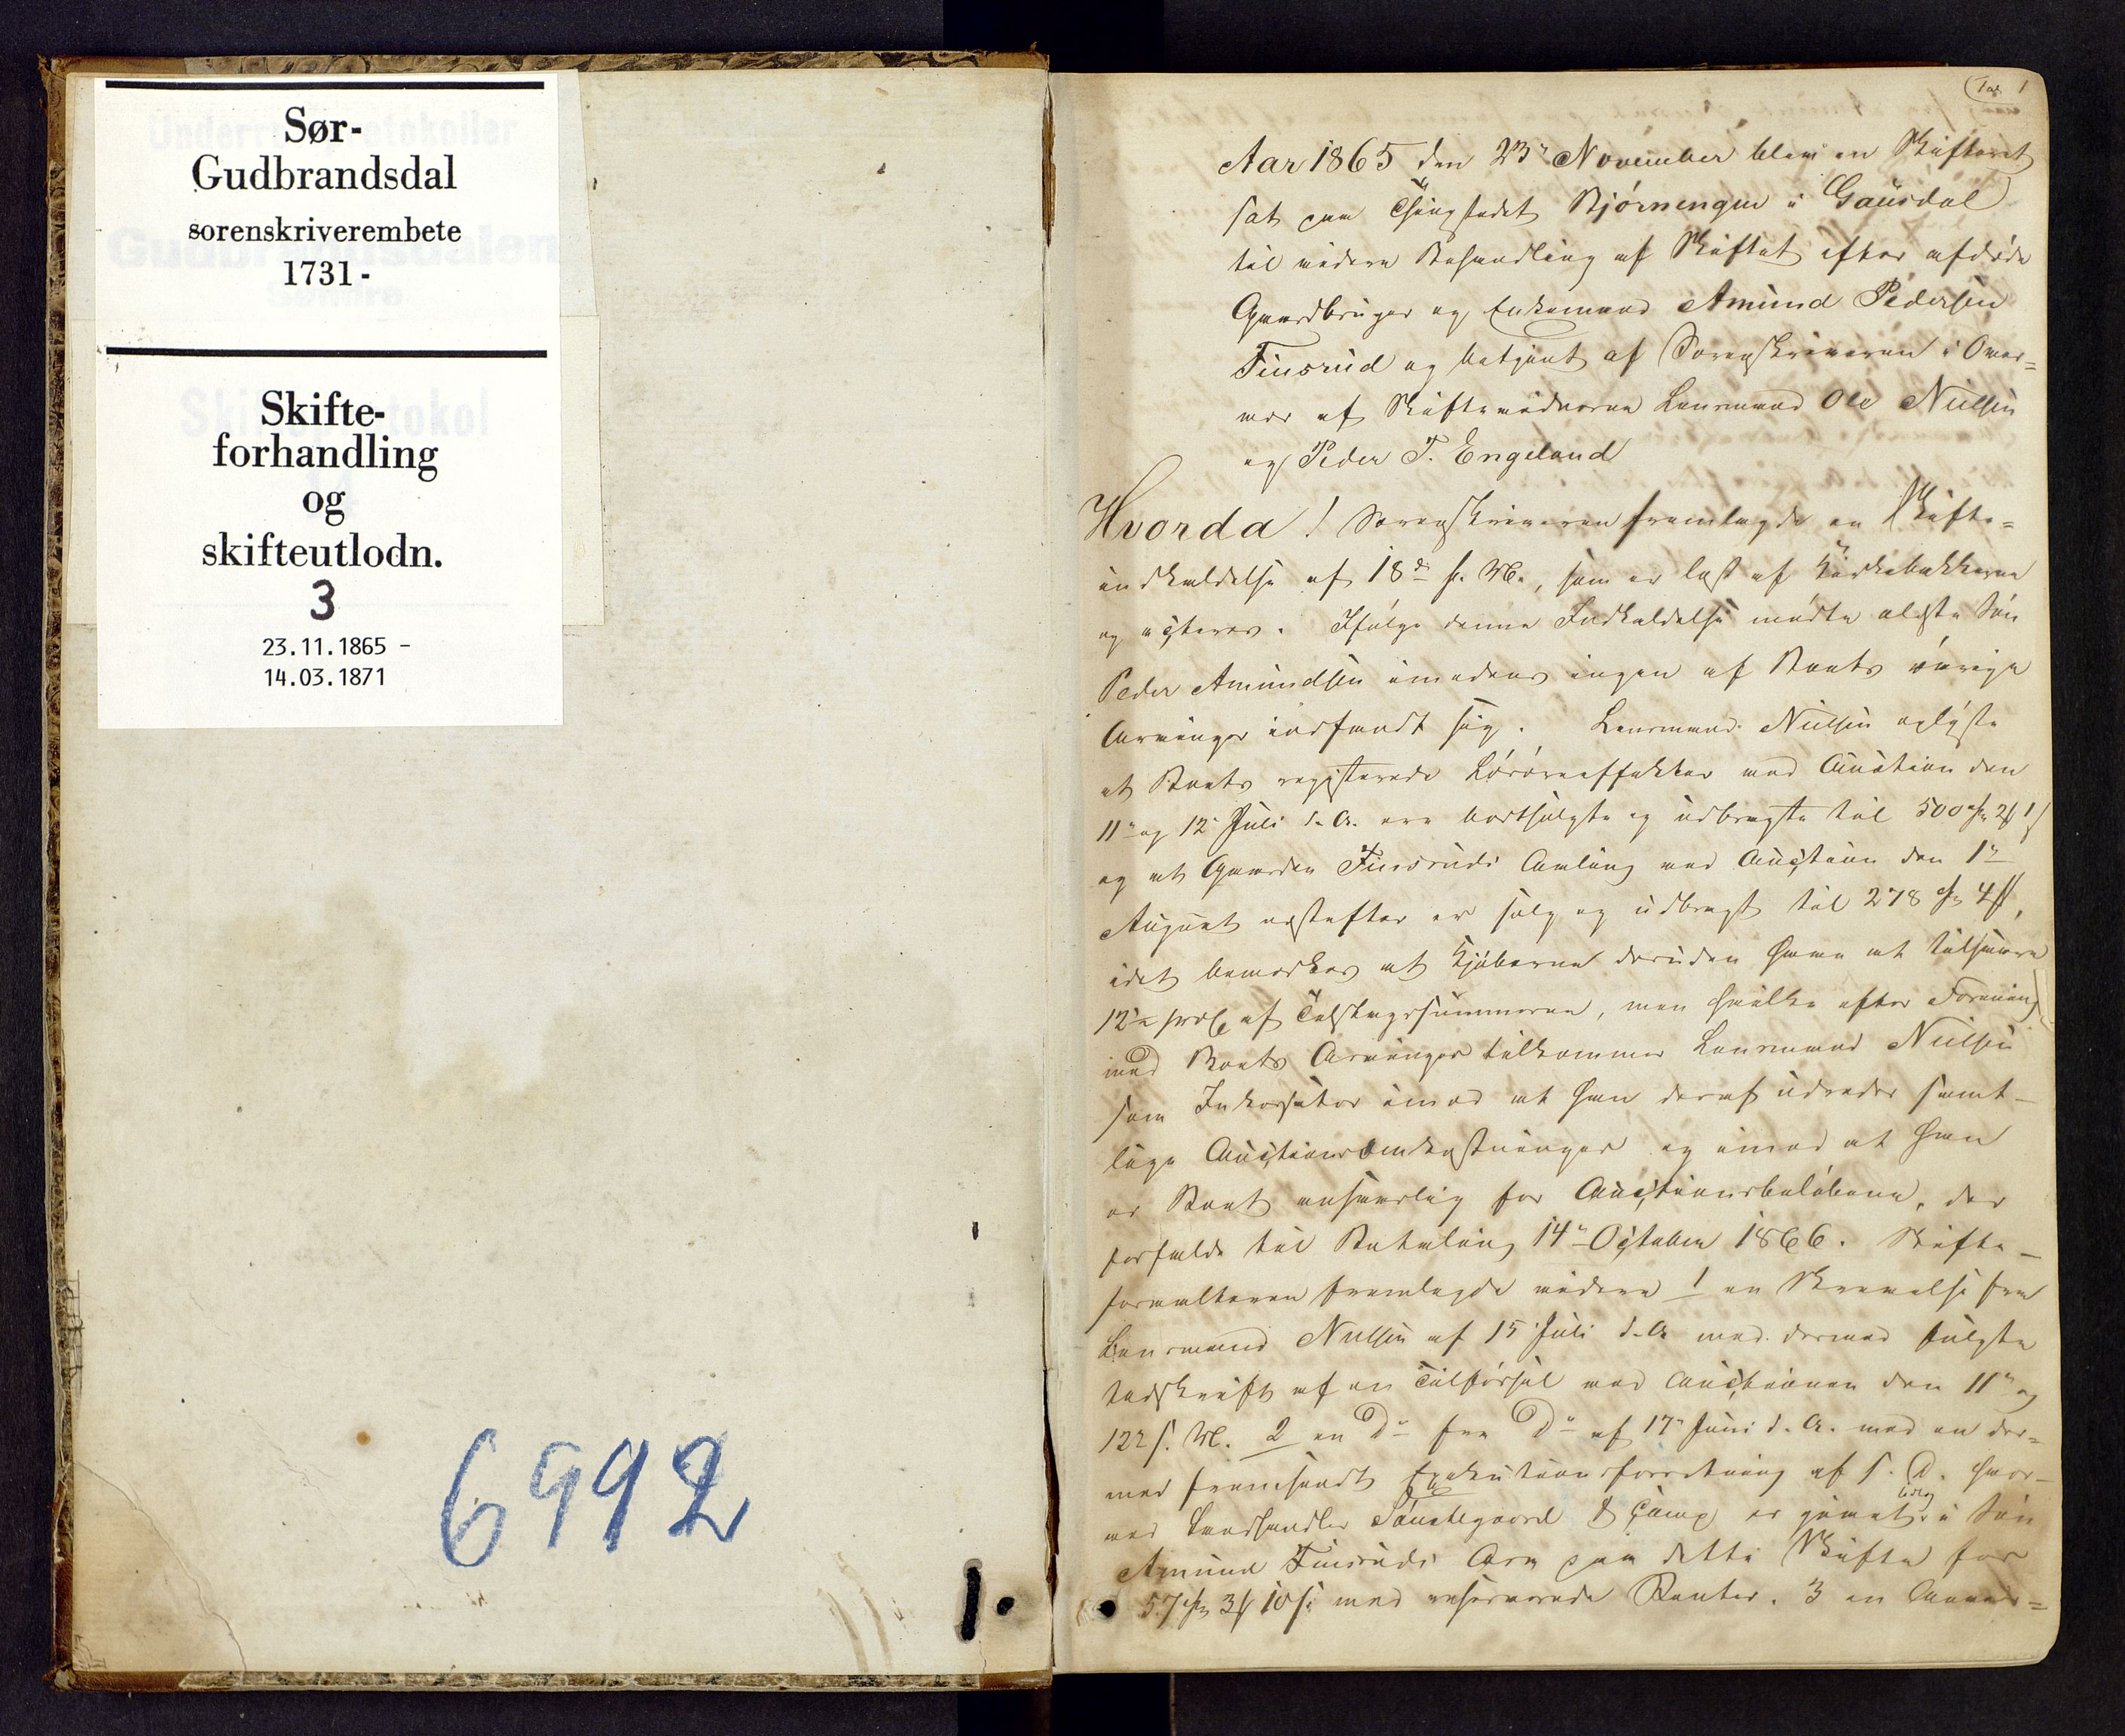 Sør-
Gudbrandsdal
sorenskriverembete
1731-
Skifte-
forhandling
og
skifteutlodn.
3
23.11.1865 -
14.03.1871
6992
1
Aar 1865 den 23de November blev en Skifteret
sat paa Thingstedet Bjørnengen i Gausdal
til videre Behandling af Skiftet efter afdøde
Gaardbruger og Enkemand Amund Pedersen
Finsrud og betjent af Sorenskriveren i Over=
vær af Skiftevidnerne Lensmand Ole Nielsen
og Peder T. Engeland
Hvorda! Sorenskriveren fremlagde en Skifte=
indkaldelse af 18de f. M., som er læst af Kirkebakkerne
og acteres. Ifølge denne Indkaldelse mødte ældste Søn
Peder Amundsen imedens ingen af Boets øvrige
Arvinger indfandt sig. Lensmand Nielsen oplyste
at Boets registerede Løsøreeffekter ved Auction den
11te og 12te Juli d. A. ere bortsolgte og udbragte til 500 Spd 2 ß 1 s
og at Gaarden Finsruds Avling ved Auction den 1ste
August næstefter er solg og udbragt til 278 Spd 4 ß,
idet bemærkes at Kjøberne desuden have at tilsvare
12te proC. af Tilslagssummerne, men hvilke efter Forening
med Boets Arvinger tilkommer Lensmand Nielsen
som Inkassator imod at han deraf udreder samt-
lige Auctionsomkostninger og imod at han
er Boet ansvarlig for Auctionsbeløbene, der
forfalde til Betaling 14de October 1866. Skifte-
forvalteren fremlagde videre 1 en Skrivelse fra
Lensmand Nielsen af 15 Juli d. A. med dermed fulgte
Udskrift af en Tilførsel ved Auctionen den 11te og
12te s. M. 2 en Do fra Do af 17de Juni d. A. med en der=
med fremsendt Exekutionsforretning af s. D. hvor-
ved Landhandler &amp; Comp er givet Udlæg i Søn
Amund Finsruds Arv paa dette Skifte for
57 Spd 3 ß 10 s. med reserverede Renter. 3 en